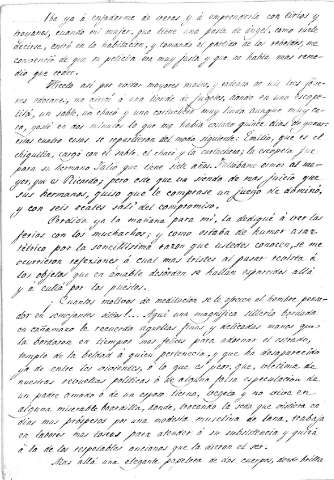 Iba yo á enfadarme de veras y á emprenderla con tirios y
troyanos, cuando mi mujer, que tiene una pasta de ángel, como suele
decirse, entró en la habitacion, y tomando el partido de los rapaces, me
convenció de que su peticion era muy justa y que no habia mas reme-
dio que ceder.
Hícelo así por evitar mayores males, y
corrió á una tienda de juguetes, donde en una escope-
tita, un sable, un chacó y una cartuchera muy linda aunque muy ca-
ra, gasté en dos minutos lo que me habia
cuatro cosas se repartieron del modo siguiente: Emilio, que es el
chiquillo, cargó con el sable, el chacó y la cartuchera; la escopeta fué
para su hermano Julio que tiene siete años. Faltábame el ma-
yor, que es Ricardo; pero este que es de mas juicio que
sus hermanos, quiso que le comprase un juego de dominó,
y con seis reales salí del compromiso.
Perdida ya la mañana para mí, la dediqué á ver las
ferias con los muchachos; y como estaba de humor
por la sencillísima razon que ustedes conocen, se me
ocurrieron reflexiones á cual mas tristes al pasar revista á
los objetos que en amable desórden se hallan esparcidos allá
y acullá por los puestos.
¡Cuántos motivos de meditacion se le ofrecen al hombre pensa-
dor en semejantes sitios!... Aquí una magnífica sillería bordada
en cañamazo le recuerda aquellas finas y delicadas manos que
la bordaron en tiempos mas felices para adornar el estrado,
templo de la beldad á quien perteneció, y que ha desaparecido
ya de entre los vivientes, ó lo que es peor, que, víctima de
nuestras revueltas políticas ó de alguna falsa especulacion de
un padre amado ó de un esposo tierno, vegeta y no vive en
alguna miserable boardilla, donde, trocando la seda que vistiera en
dias mas prósperos por una modesta muselina de lana, trabaja
en labores mas toscas para atender á su subsistencia y quizá
á la de los respetables ancianos que la dieron el ser.
Mas allá una elegante papelera de dos cuerpos, donde brilla